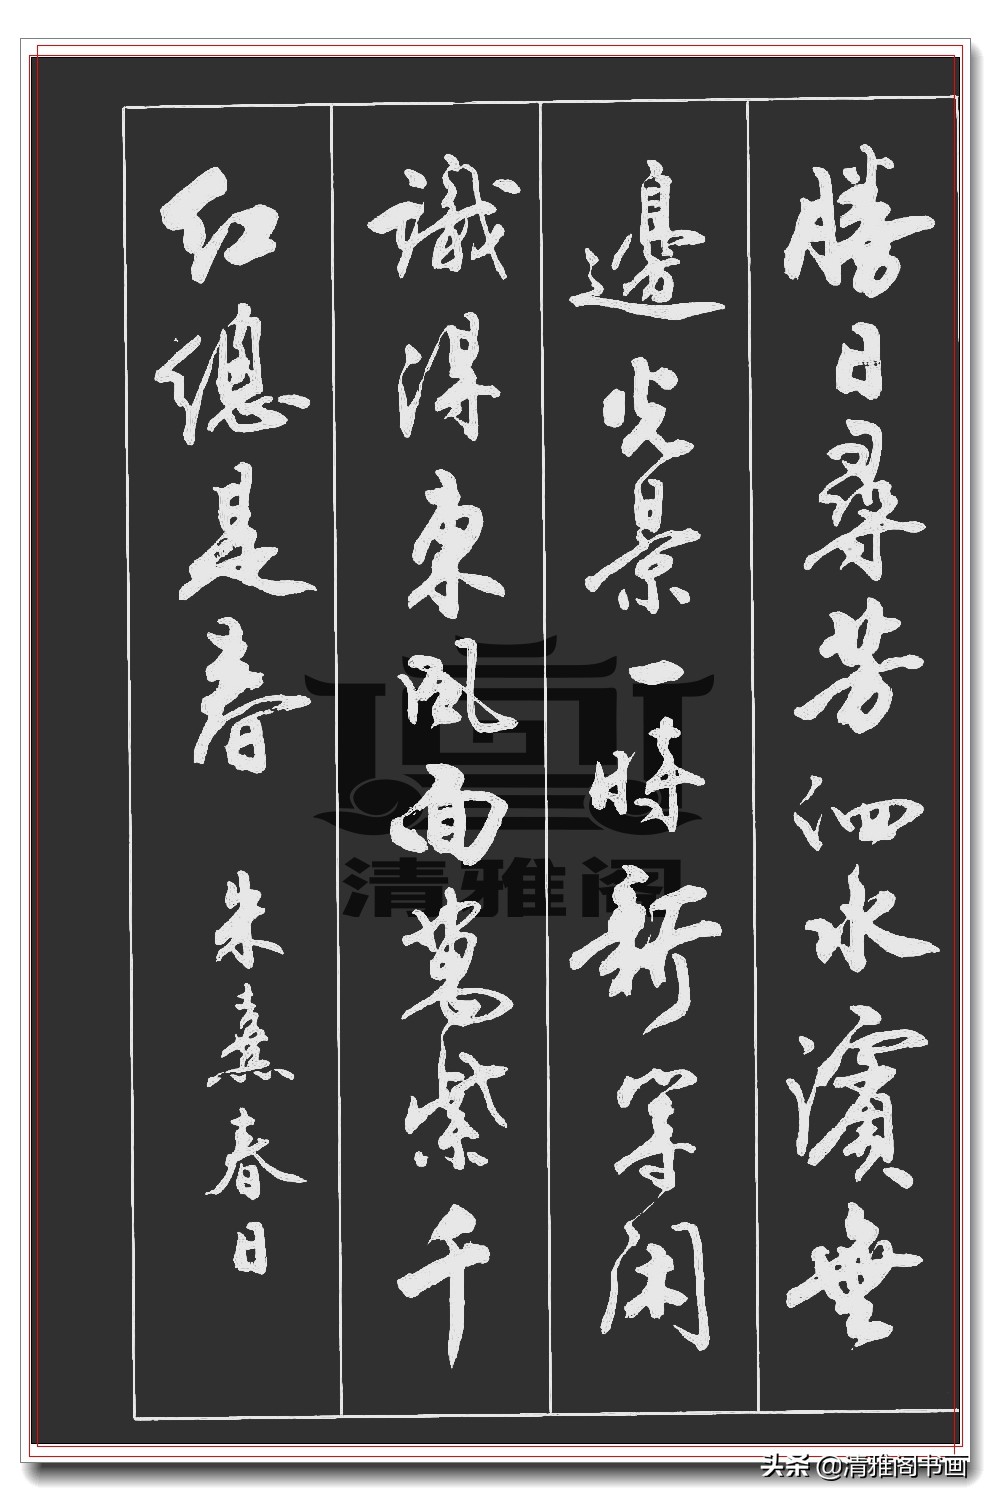 勝日尋芳泗水濱無
邊光景一時新等閑
識得東風面萬紫千
紅總是春 朱熹春日
清雅阁
头条 @清雅阁书画